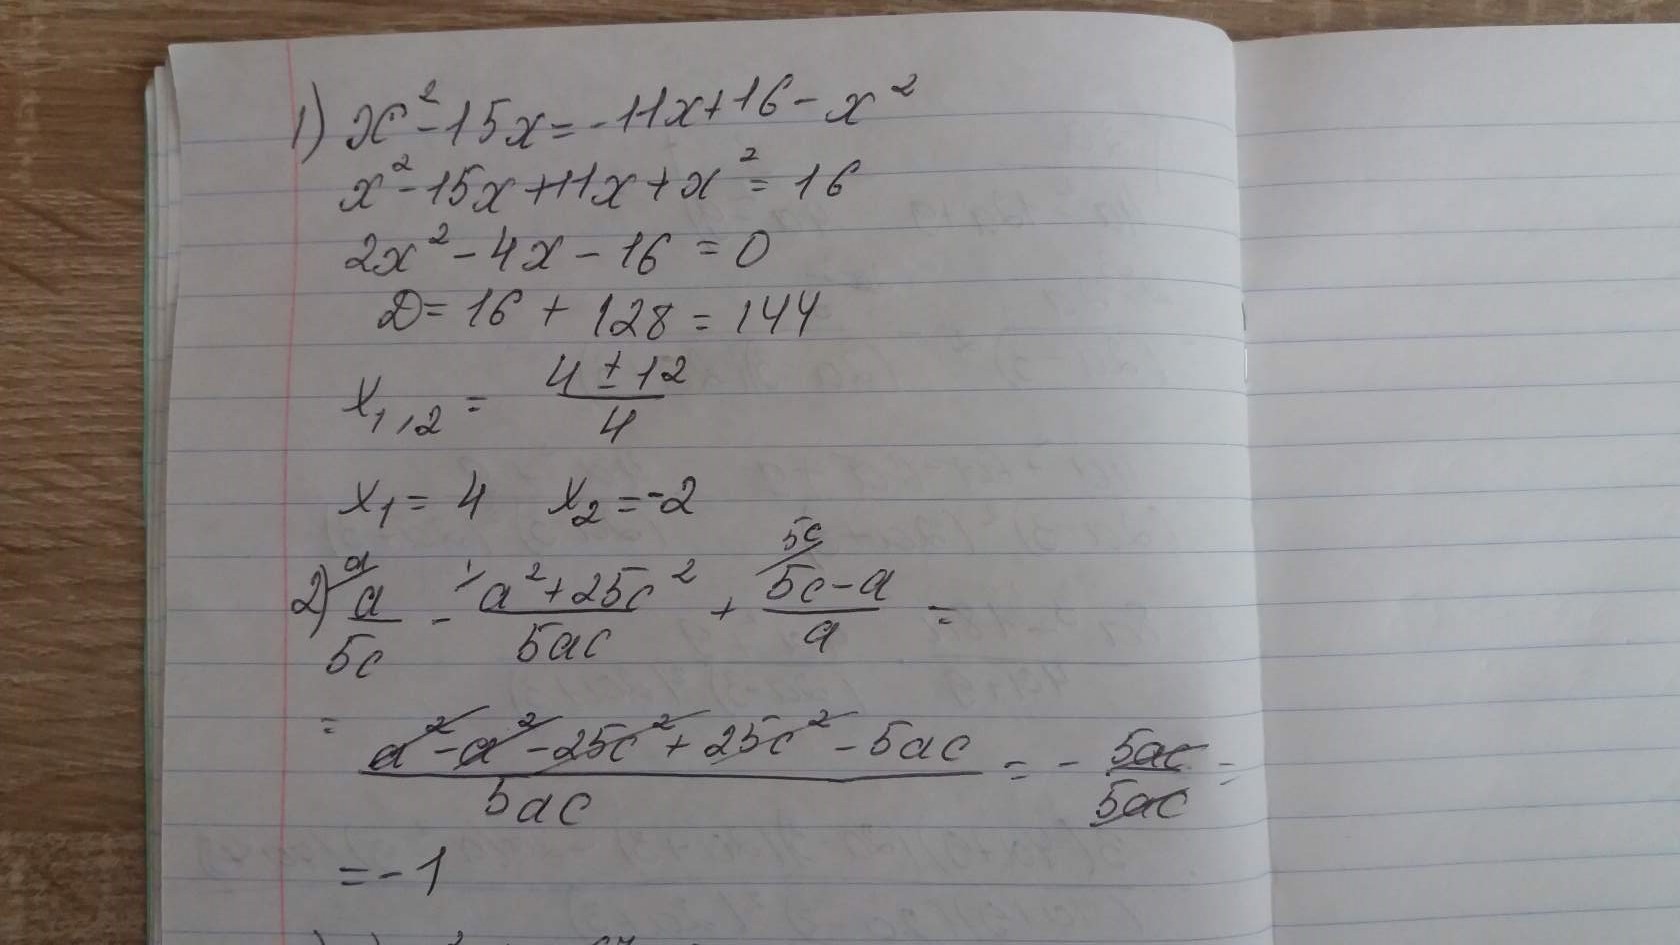 1) x² - 15x = -11x + 16 - x²
x² - 15x + 11x + x² = 16
2x² - 4x - 16 = 0
D = 16 + 128 = 144
x₁,₂ = (4 ± 12)/4
x₁ = 4 x₂ = -2
2) a/5c ⁽ᵃ - (a² + 25c²)/5ac ⁽¹ + (5c - a)/a ⁽⁵ᶜ =
= (a² - a² - 25c² + 25c² - 5ac)/5ac = - 5ac/5ac =
= -1